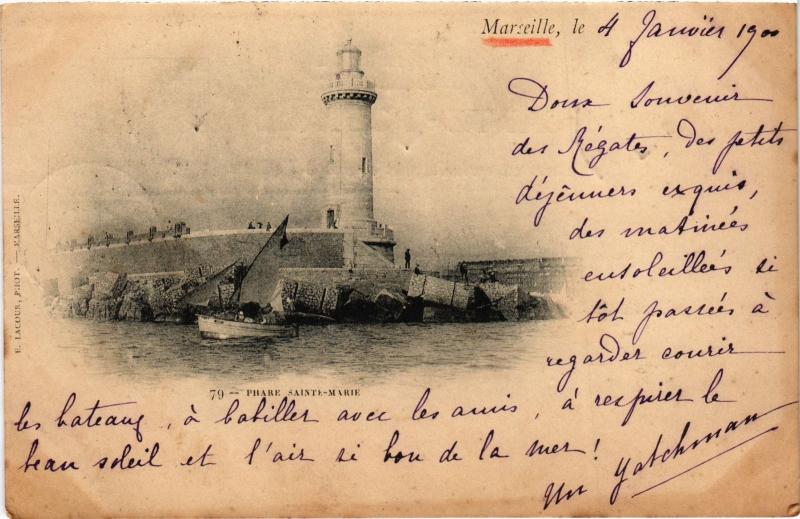 Marseille, le 4 Janvïer 1900
Doux Souvenir
des Régates, des petits
déjeûners exquis,
des matinées
ensoleillées si
tôt passées à
regarder courir
les bateaux, à babiller avec les amis, à respirer le
beau soleil et l'air si bon de la mer!
Un Yatchman
E. LACOUR, PHOT. — MARSEILLE.
79 — PHARE SAINTE-MARIE